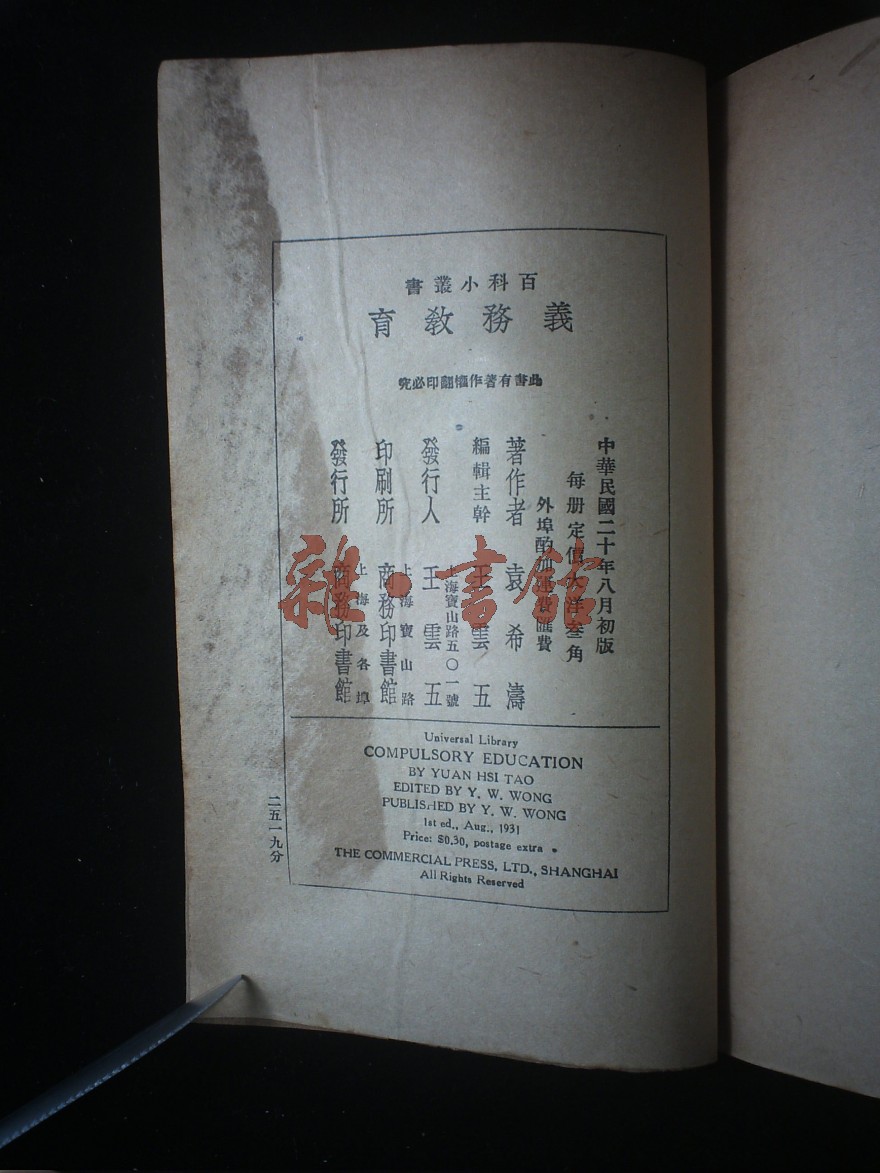 百科小叢書
義務教育
此書有著作權翻印必究
中華民國二十年八月初版
每册定價大洋叁角
外埠酌加運費匯費
著作者 袁希濤
編輯主幹 王雲五
上海寶山路五〇一號
發行人 王雲五
上海寶山路
印刷所 商務印書館
上海及各埠
發行所 商務印書館
Universal Library
COMPULSORY EDUCATION
BY YUAN HSI TAO
EDITED BY Y. W. WONG
PUBLISHED BY Y. W. WONG
1st ed., Aug., 1931
Price: $0.30, postage extra
THE COMMERCIAL PRESS, LTD., SHANGHAI
All Rights Reserved
二五一九分
雜·書館